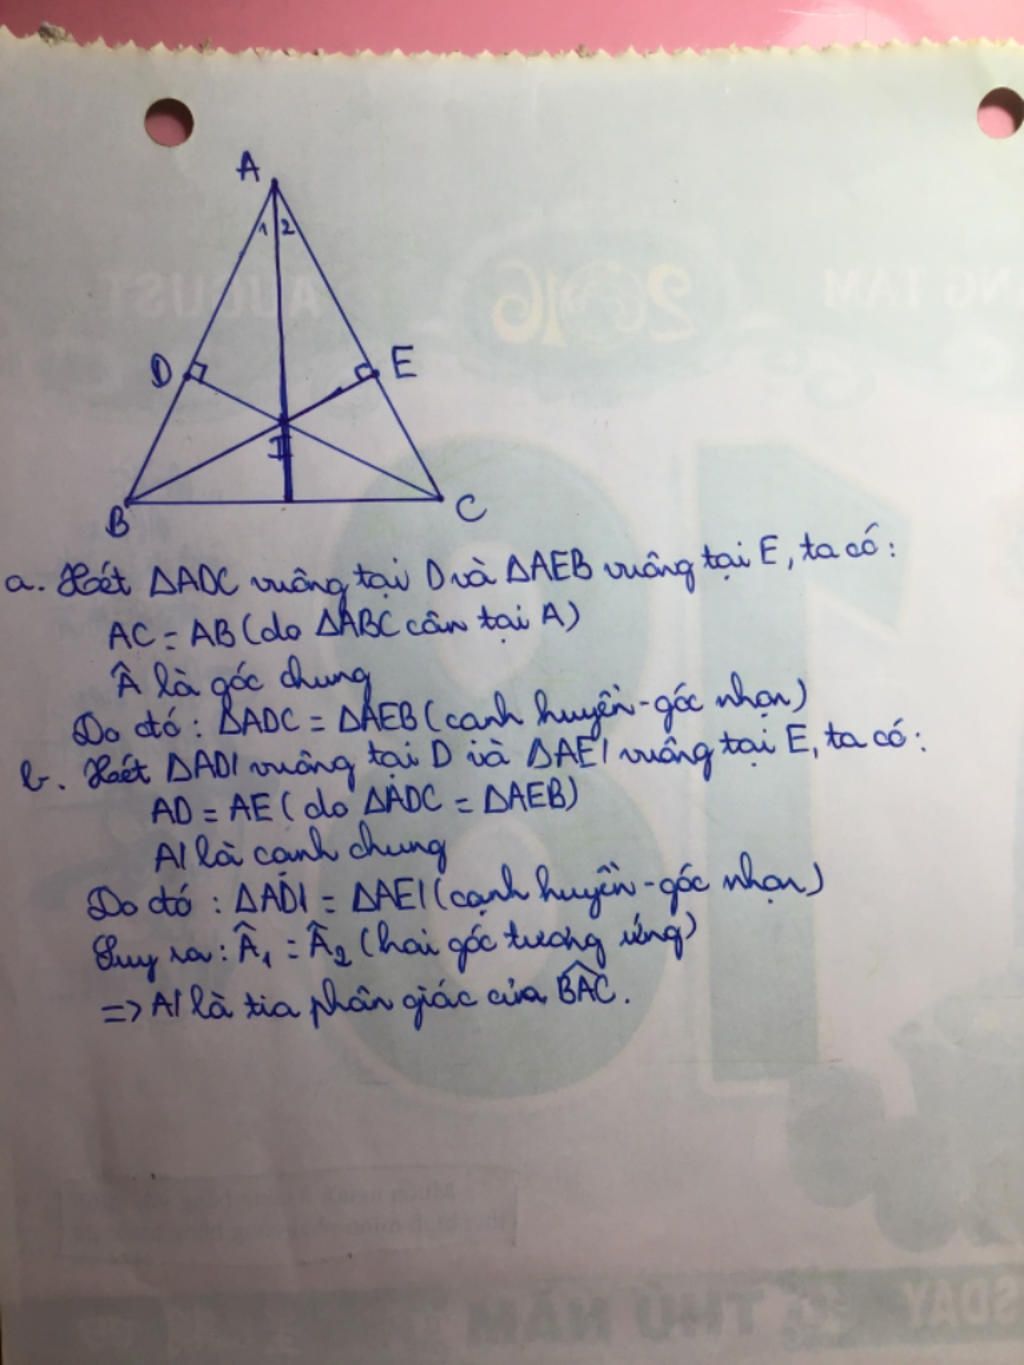 A
1 2
D
E
I
B
C
a. Xét ΔADC vuông tại D và ΔAEB vuông tại E, ta có:
AC = AB (do ΔABC cân tại A)
Â là góc chung
Do đó: ΔADC = ΔAEB (cạnh huyền-góc nhọn)
b. Xét ΔADI vuông tại D và ΔAEI vuông tại E, ta có:
AD = AE (do ΔADC = ΔAEB)
AI là cạnh chung
Do đó: ΔADI = ΔAEI (cạnh huyền-góc nhọn)
Suy ra: Â₁ = Â₂ (hai góc tương ứng)
=> AI là tia phân giác của B̂AC.
NG TÁM
2016
AUGUST
18
SDAY
THỨ NĂM